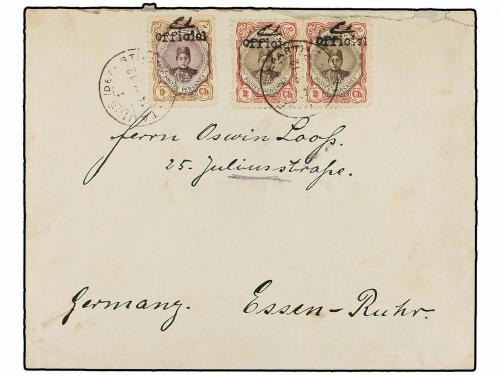 Official Official Official
9 Ch 2 Ch 2 Ch
Herrn Oswin Loofs.
25. Juliusstraße.
Germany. Essen-Ruhr.